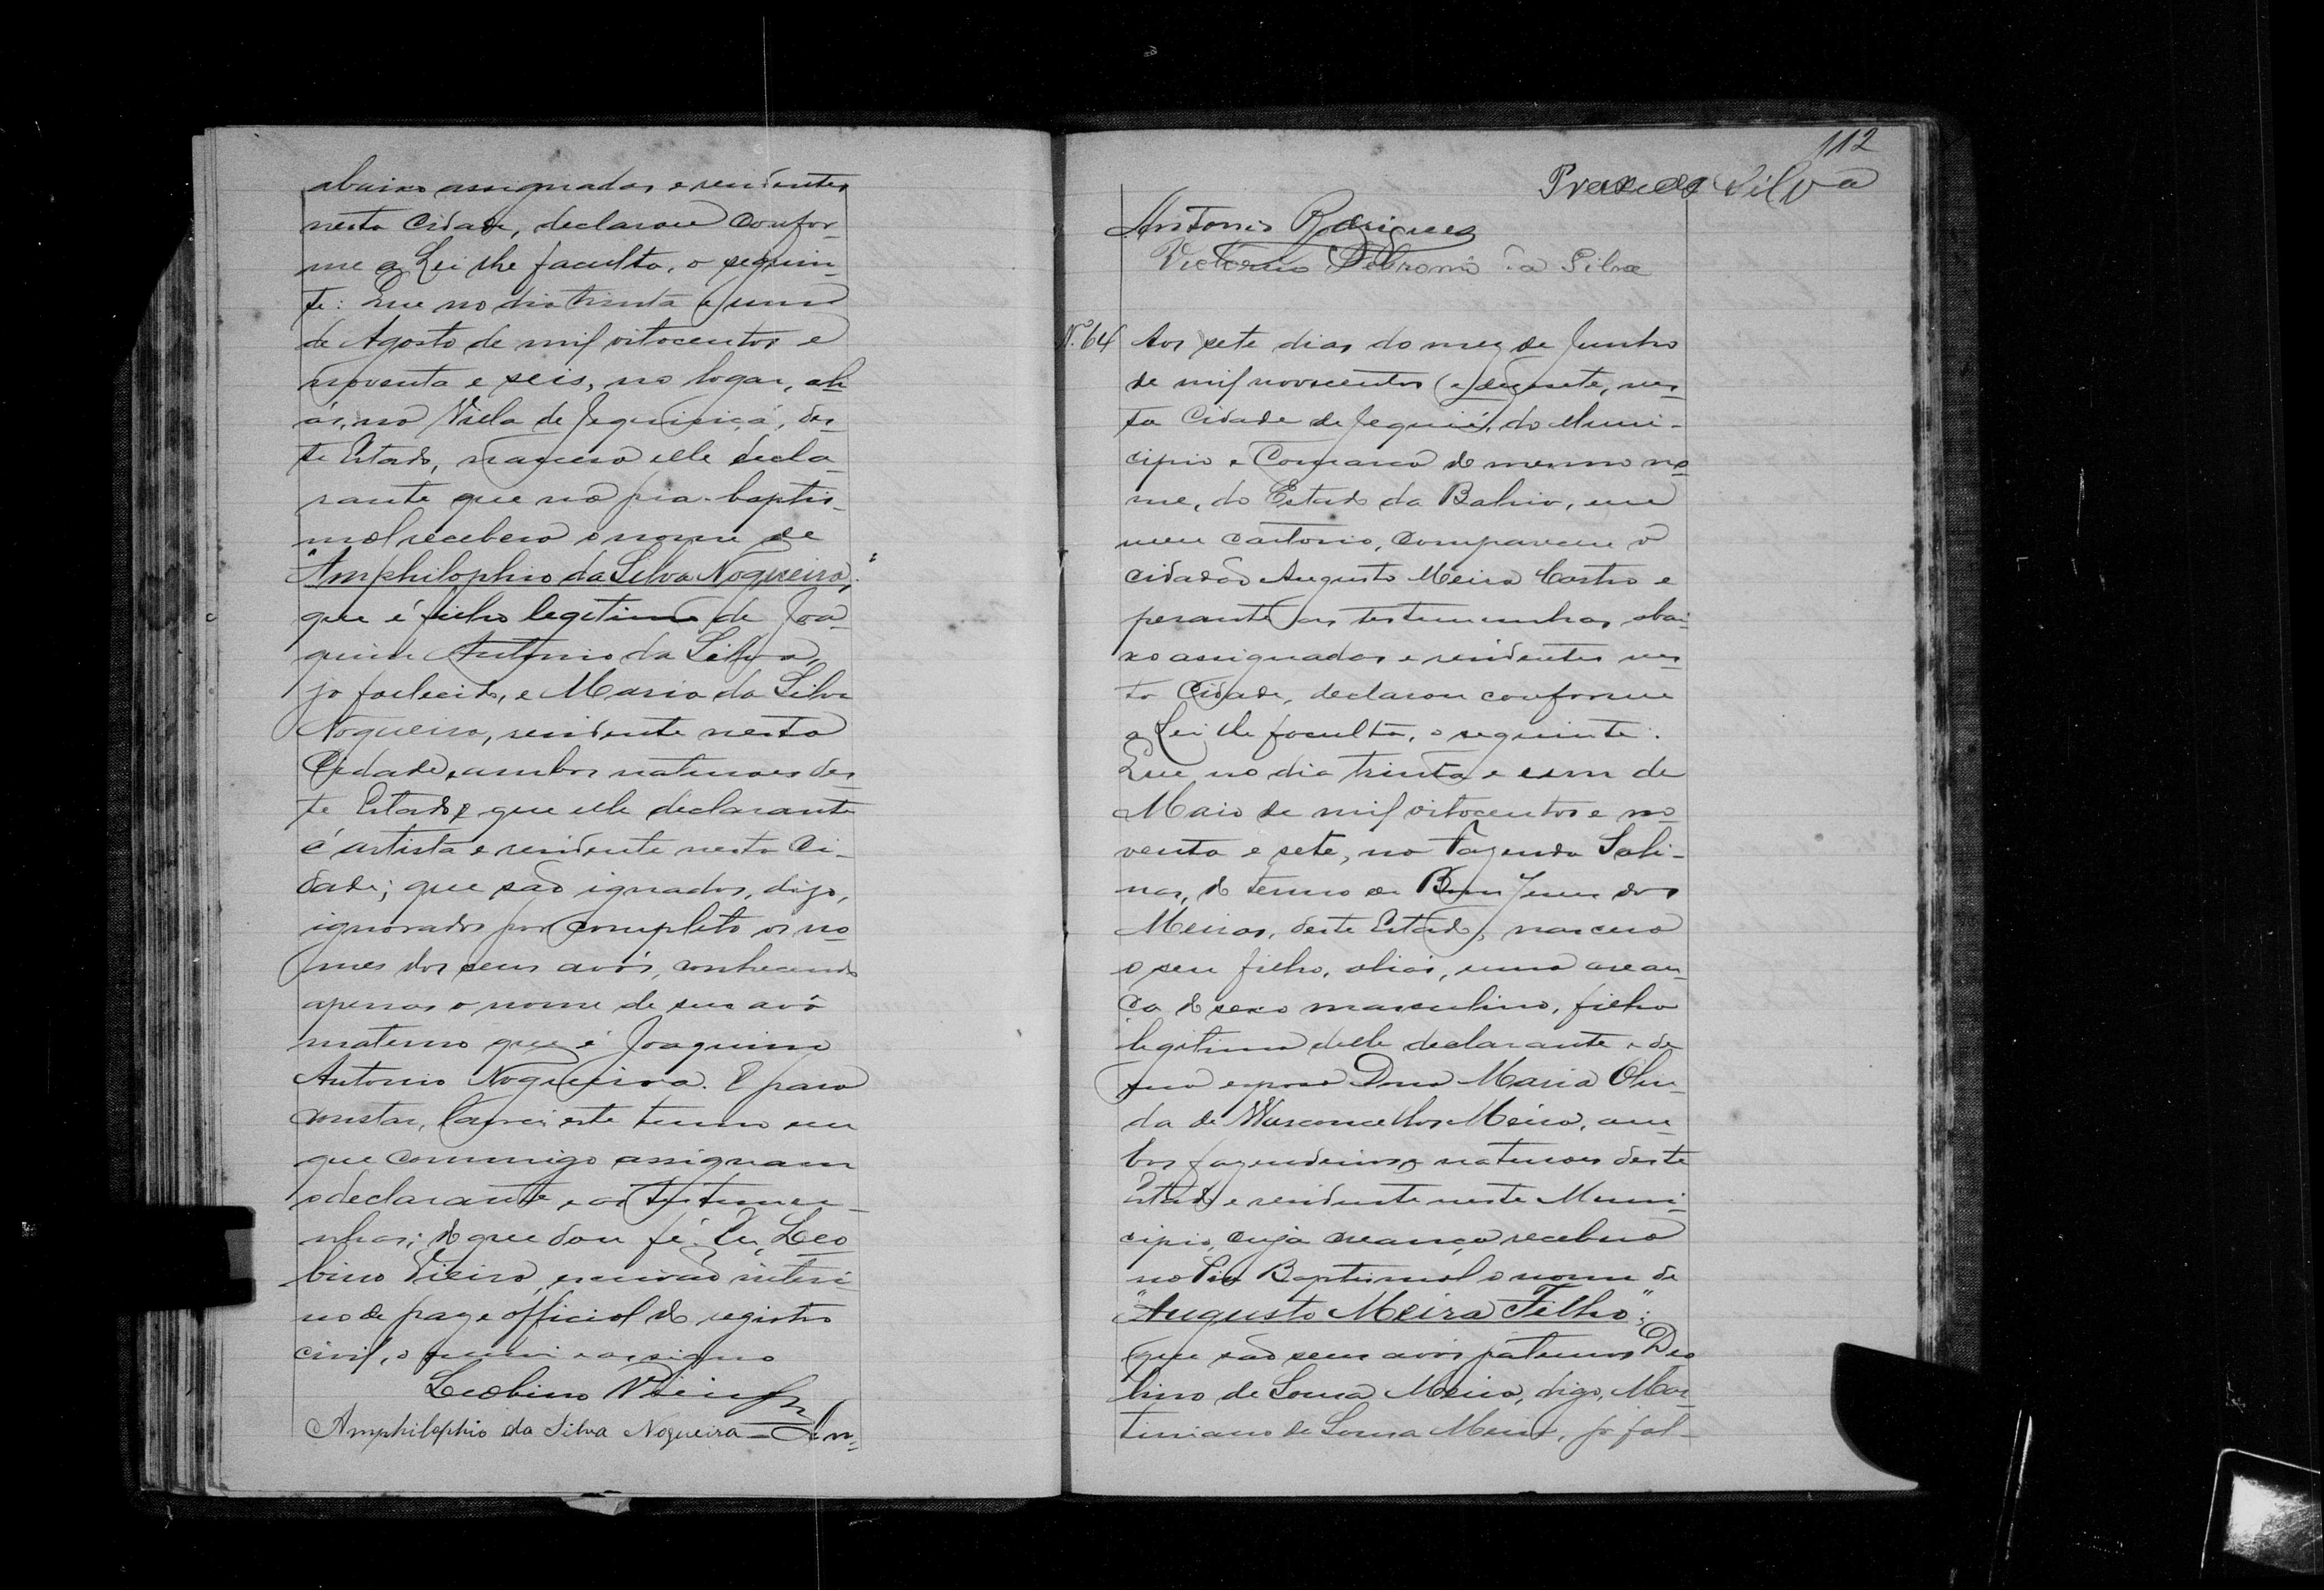 abaixo assignadas e residentes
nesta Cidade, declarou Confor-
me a Lei lhe faculta, o seguin-
te: Que no dia trinta e um
de Agosto de mil oitocentos e
noventa e seis, no logar, ali
ás, na Villa de Jequiriçá, des-
te Estado, nasceu elle decla-
rante que na pia-baptis-
mal recebera o nome de
"Amphilophio da Silva Nogueira;"
que é filho legitimo de Joa-
quim Antonio da Silva,
já fallecido, e Maria da Silva
Nogueira, residente nesta
Cidade, ambos naturaes des-
te Estado, que elle declarante
é artista e residente nesta Ci-
dade; que são ignados, digo,
ignorados por completo os no-
mes dos seus avós, conhecendo
apenas o nome de seu avô
materno que é Joaquim
Antonio Nogueira. E para
constar, lavrei este termo em
que commigo assignam
o declarante e as testemu-
nhas; do que dou fé. Eu, Leo
bino Vieira, escrivão interi-
no de paz e official do registro
civil, o escrevi e assigno
Leobino Vieira
Amphilophio da Silva Nogueira - An-
112
Praxedes Silva
Antonio Rodrigues
Victorio da Silva
Nº. 64 Aos sete dias do mez de Junho
de mil novecentos e dezesete, nes-
ta Cidade de Jequié, do Muni-
cipio e Comarca do mesmo no-
me, do Estado da Bahia, em
meu cartorio, compareceu o
cidadão Augusto Meira Castro e
perante as testemunhas abai-
xo assignadas e residentes nes-
ta Cidade, declarou conforme
a Lei lhe faculta, o seguinte:
Que no dia trinta e um de
Maio de mil oitocentos e no-
venta e sete, na Fazenda Sali-
nas, do termo de Bom Jesus dos
Meiras, deste Estado, nascera
o seu filho, aliás, uma crean-
ça do sexo masculino, filho
legitimo delle declarante e de
sua esposa Dona Maria Olin-
da de Wasconcellos Meira, am-
bos fazendeiros, naturaes deste
Estado e residente neste Muni-
cipio, cuja creança recebera
na Pia Baptismal o nome de
"Augusto Meira Filho";
que são seus avós paternos Deo
lino de Sousa Meira, digo, Mar-
tiniano de Sousa Meira, já fal-